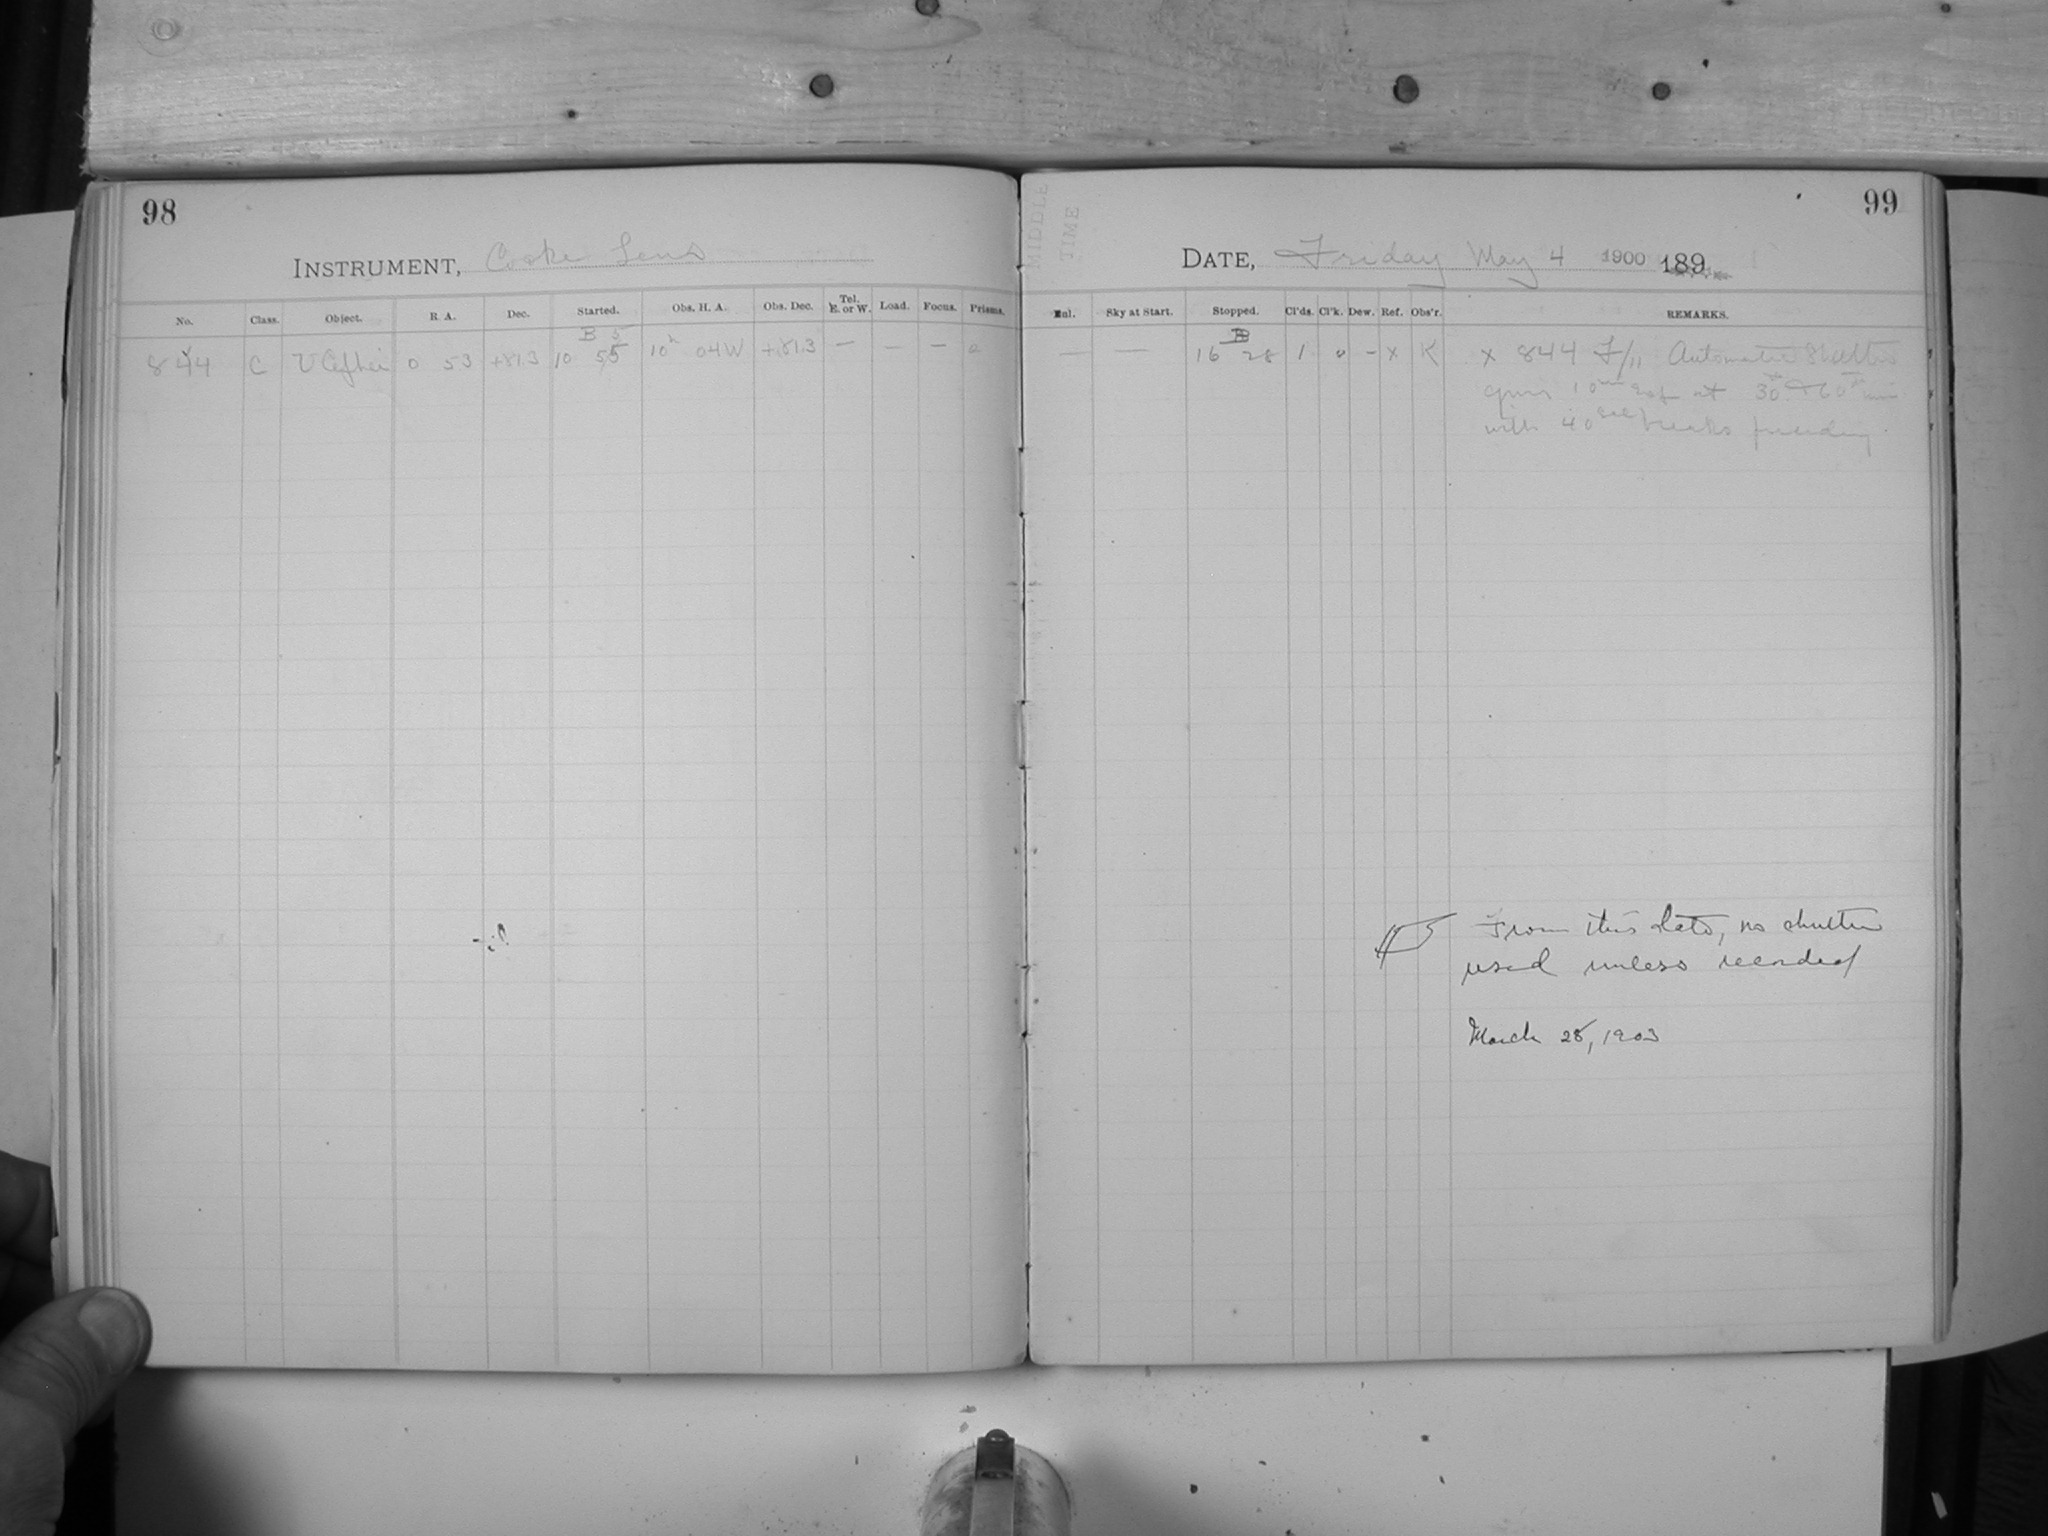 98
INSTRUMENT, Cooke Lens
No. Class. Object. R A. Dec. Started. Obs. H. A. Obs. Dec. Tel. E. or W. Load. Focus. Prisms.
B 5
844 C U Cephei 0 53 +81.3 10 55 10h 04W +81.3 — — — 0
99
MIDDLE
TIME
DATE, Friday May 4 1900 189
Enl. Sky at Start. Stopped. Cl'ds. Cl'k. Dew. Ref. Obs'r. REMARKS.
B
— — 16 28 1 0 - x K x 844 F/11 Automatic Shutter
gives 10 at 30 & 60 min
with 40 sec breaks preceding.
From this date, no shutter
used unless recorded
March 28, 1903